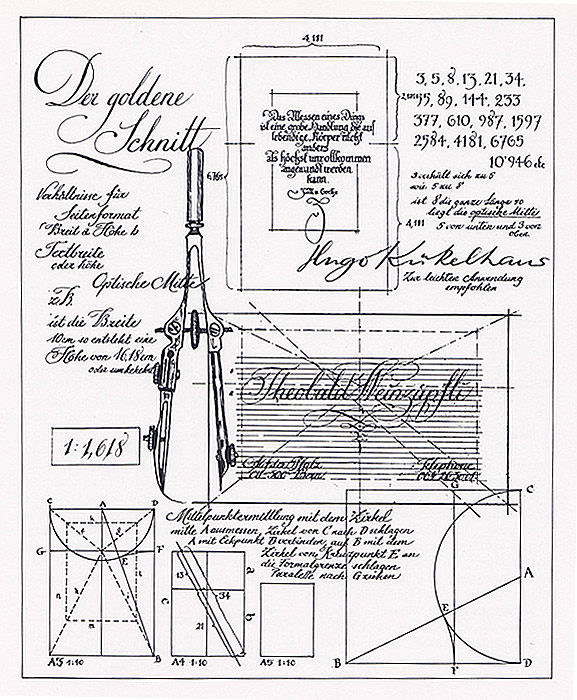 Der goldene
Schnitt
4,111
3, 5, 8, 13, 21, 34,
55, 89, 144, 233
377, 610, 987, 1597
2584, 4181, 6765
10'946 etc
Das Messen eines Dings
ist eine grobe Handlung die auf
lebendige Körper nicht
anders
als höchst unvollkommen
angewandt werden
kann.
6,765
3 verhält sich zu 5
wie 5 zu 8
ist 8 die ganze Länge so
liegt die optische Mitte
5 von unten und 3 von
oben.
4,111
Verhältnisse für
Seitenformat
Breit à Höhe b
Textbreite
oder höhe
Optische Mitte
z.B.
ist die Breite
10cm so entsteht eine
Höhe von 16,18cm
oder umgekehrt
Hugo Kükelhaus
Zur leichten Anwendung
empfohlen
Theobald Weinzäpfli
Telephone
1:1,618
Mittelpunktermittlung mit dem Zirkel
mitte A ausmessen, Zirkel von C nach D schlagen
A mit Eckpunkt B verbinden, auf B mit dem
Zirkel von Kreuzpunkt E an
die Formatgrenze schlagen
Paralelle nach G ziehen
C A D
G F
E
B
A3 1:10
13
34
21
a
c
b
A4 1:10
A5 1:10
G C
A
E
B F D